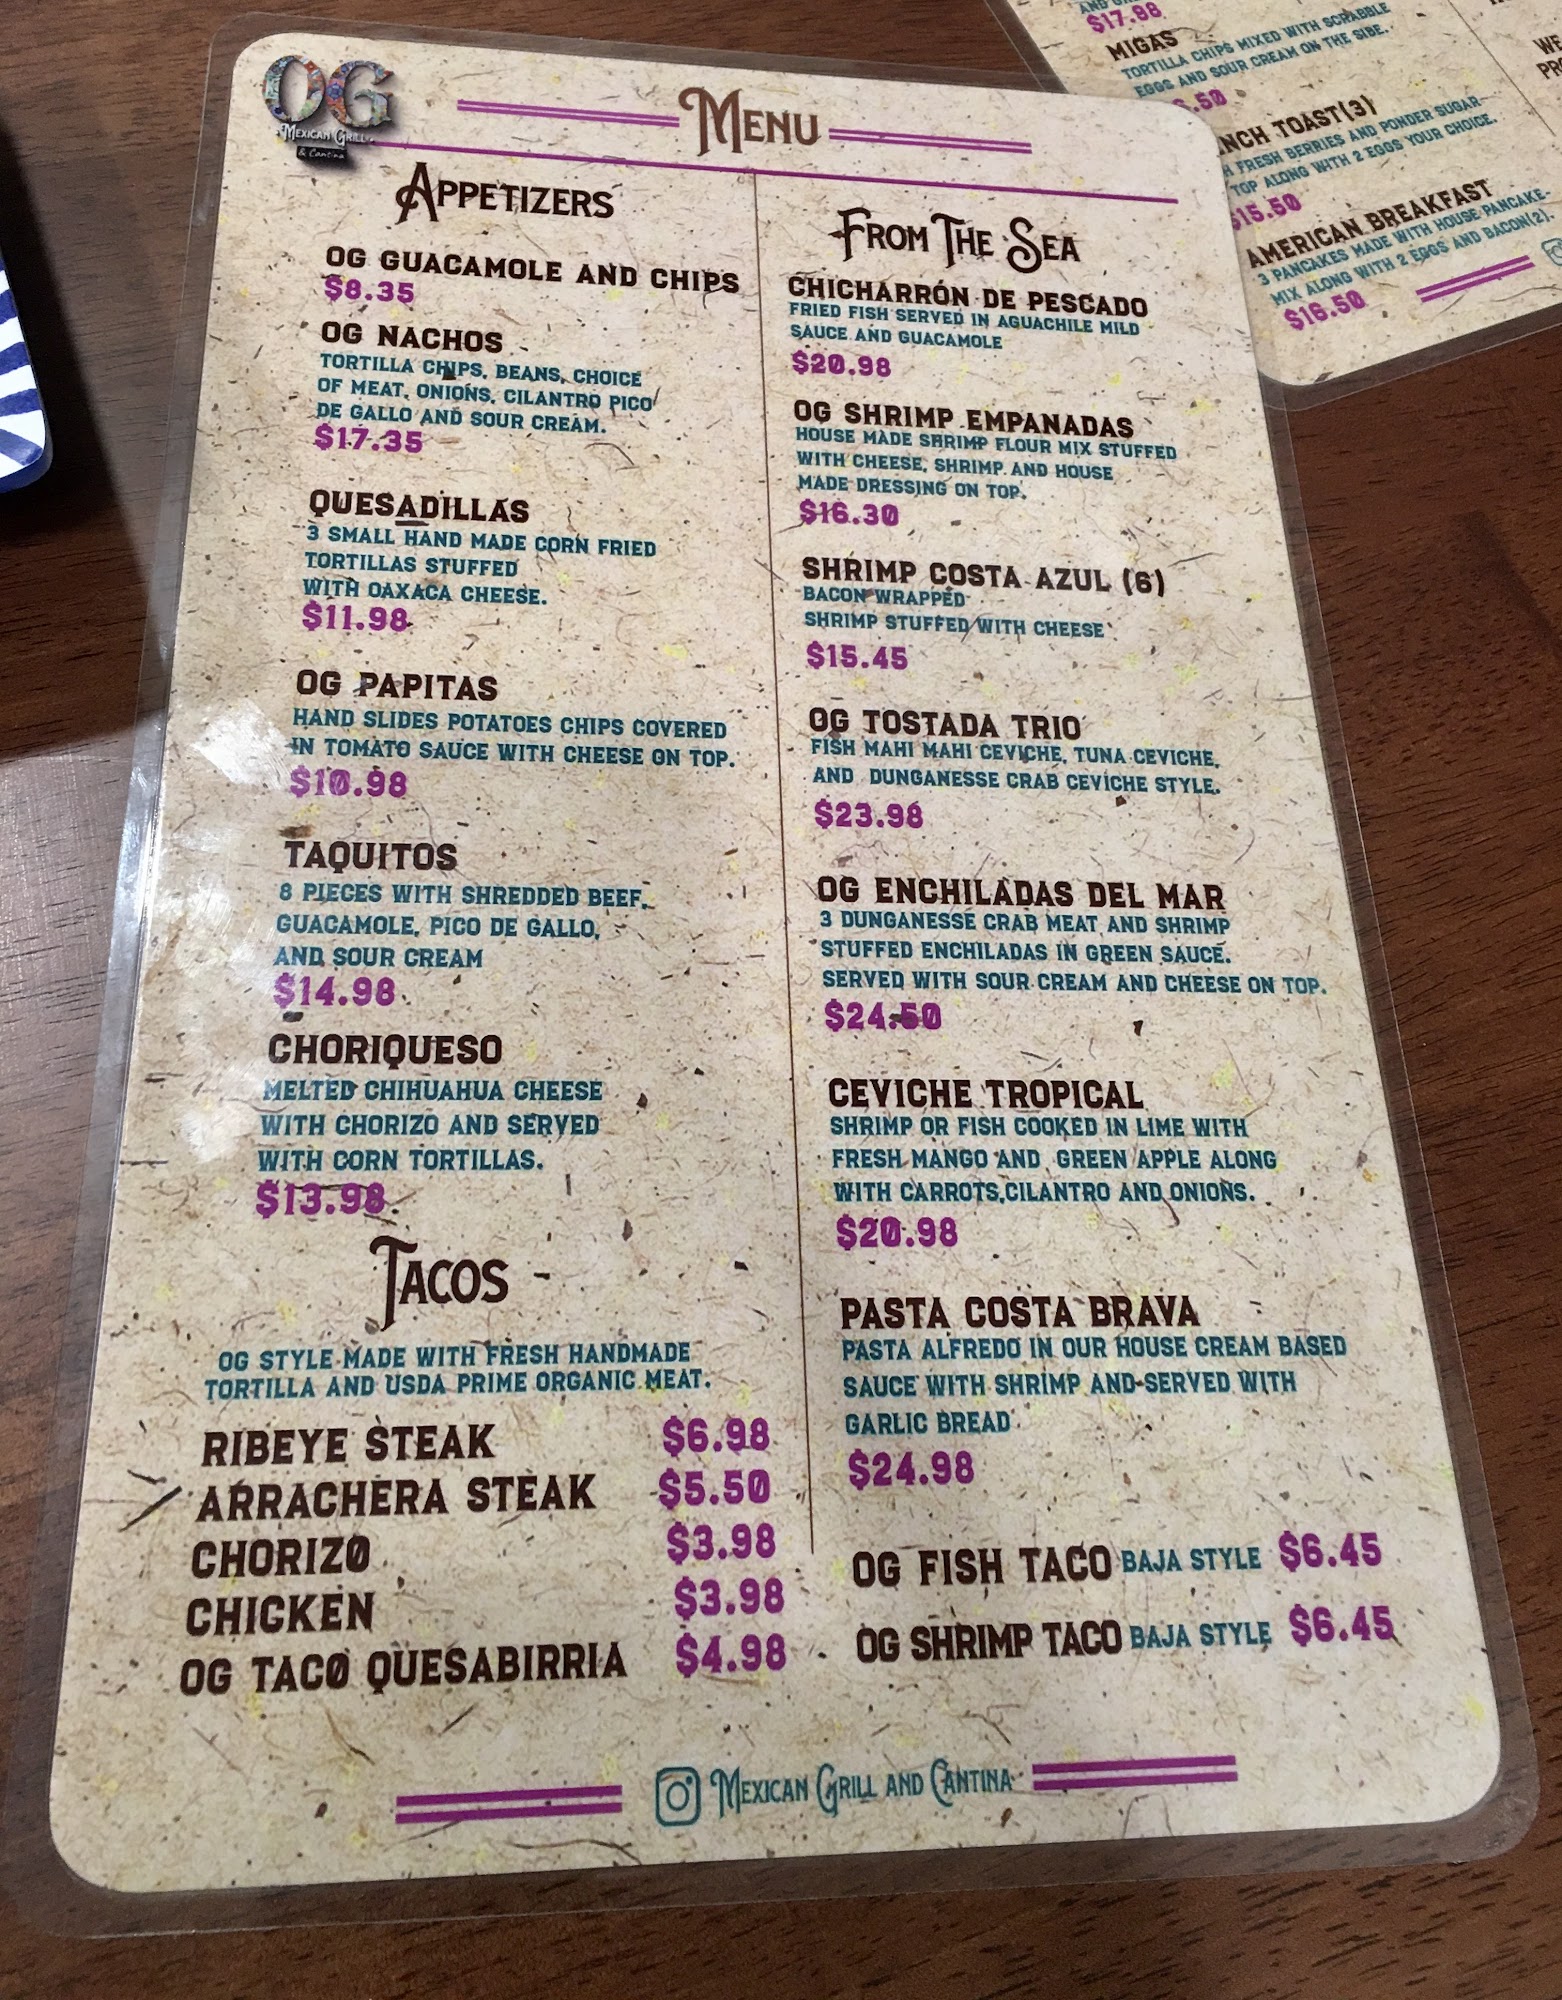 OG
MEXICAN GRILL
& Cantina
MENU
APPETIZERS
OG GUACAMOLE AND CHIPS
$8.35
OG NACHOS
TORTILLA CHIPS, BEANS, CHOICE
OF MEAT, ONIONS, CILANTRO PICO
DE GALLO AND SOUR CREAM.
$17.35
QUESADILLAS
3 SMALL HAND MADE CORN FRIED
TORTILLAS STUFFED
WITH OAXACA CHEESE.
$11.98
OG PAPITAS
HAND SLIDES POTATOES CHIPS COVERED
IN TOMATO SAUCE WITH CHEESE ON TOP.
$10.98
TAQUITOS
8 PIECES WITH SHREDDED BEEF,
GUACAMOLE, PICO DE GALLO,
AND SOUR CREAM
$14.98
CHORIQUESO
MELTED CHIHUAHUA CHEESE
WITH CHORIZO AND SERVED
WITH CORN TORTILLAS.
$13.98
TACOS
OG STYLE MADE WITH FRESH HANDMADE
TORTILLA AND USDA PRIME ORGANIC MEAT.
RIBEYE STEAK $6.98
ARRACHERA STEAK $5.50
CHORIZO $3.98
CHICKEN $3.98
OG TACO QUESABIRRIA $4.98
FROM THE SEA
CHICHARRÓN DE PESCADO
FRIED FISH SERVED IN AGUACHILE MILD
SAUCE AND GUACAMOLE
$20.98
OG SHRIMP EMPANADAS
HOUSE MADE SHRIMP FLOUR MIX STUFFED
WITH CHEESE, SHRIMP AND HOUSE
MADE DRESSING ON TOP.
$16.30
SHRIMP COSTA AZUL (6)
BACON WRAPPED
SHRIMP STUFFED WITH CHEESE
$15.45
OG TOSTADA TRIO
FISH MAHI MAHI CEVICHE, TUNA CEVICHE,
AND DUNGANESSE CRAB CEVICHE STYLE.
$23.98
OG ENCHILADAS DEL MAR
3 DUNGANESSE CRAB MEAT AND SHRIMP
STUFFED ENCHILADAS IN GREEN SAUCE.
SERVED WITH SOUR CREAM AND CHEESE ON TOP.
$24.50
CEVICHE TROPICAL
SHRIMP OR FISH COOKED IN LIME WITH
FRESH MANGO AND GREEN APPLE ALONG
WITH CARROTS,CILANTRO AND ONIONS.
$20.98
PASTA COSTA BRAVA
PASTA ALFREDO IN OUR HOUSE CREAM BASED
SAUCE WITH SHRIMP AND SERVED WITH
GARLIC BREAD
$24.98
OG FISH TACO BAJA STYLE $6.45
OG SHRIMP TACO BAJA STYLE $6.45
MEXICAN GRILL AND CANTINA
$17.98
MIGAS
TORTILLA CHIPS MIXED WITH SCRABBLE
EGGS AND SOUR CREAM ON THE SIBE.
.50
NCH TOAST(3)
FRESH BERRIES AND PONDER SUGAR
TOP ALONG WITH 2 EGGS YOUR CHOICE.
$15.50
AMERICAN BREAKFAST
3 PANCAKES MADE WITH HOUSE PANCAKE
MIX ALONG WITH 2 EGGS AND BACON(2).
$16.50
WE